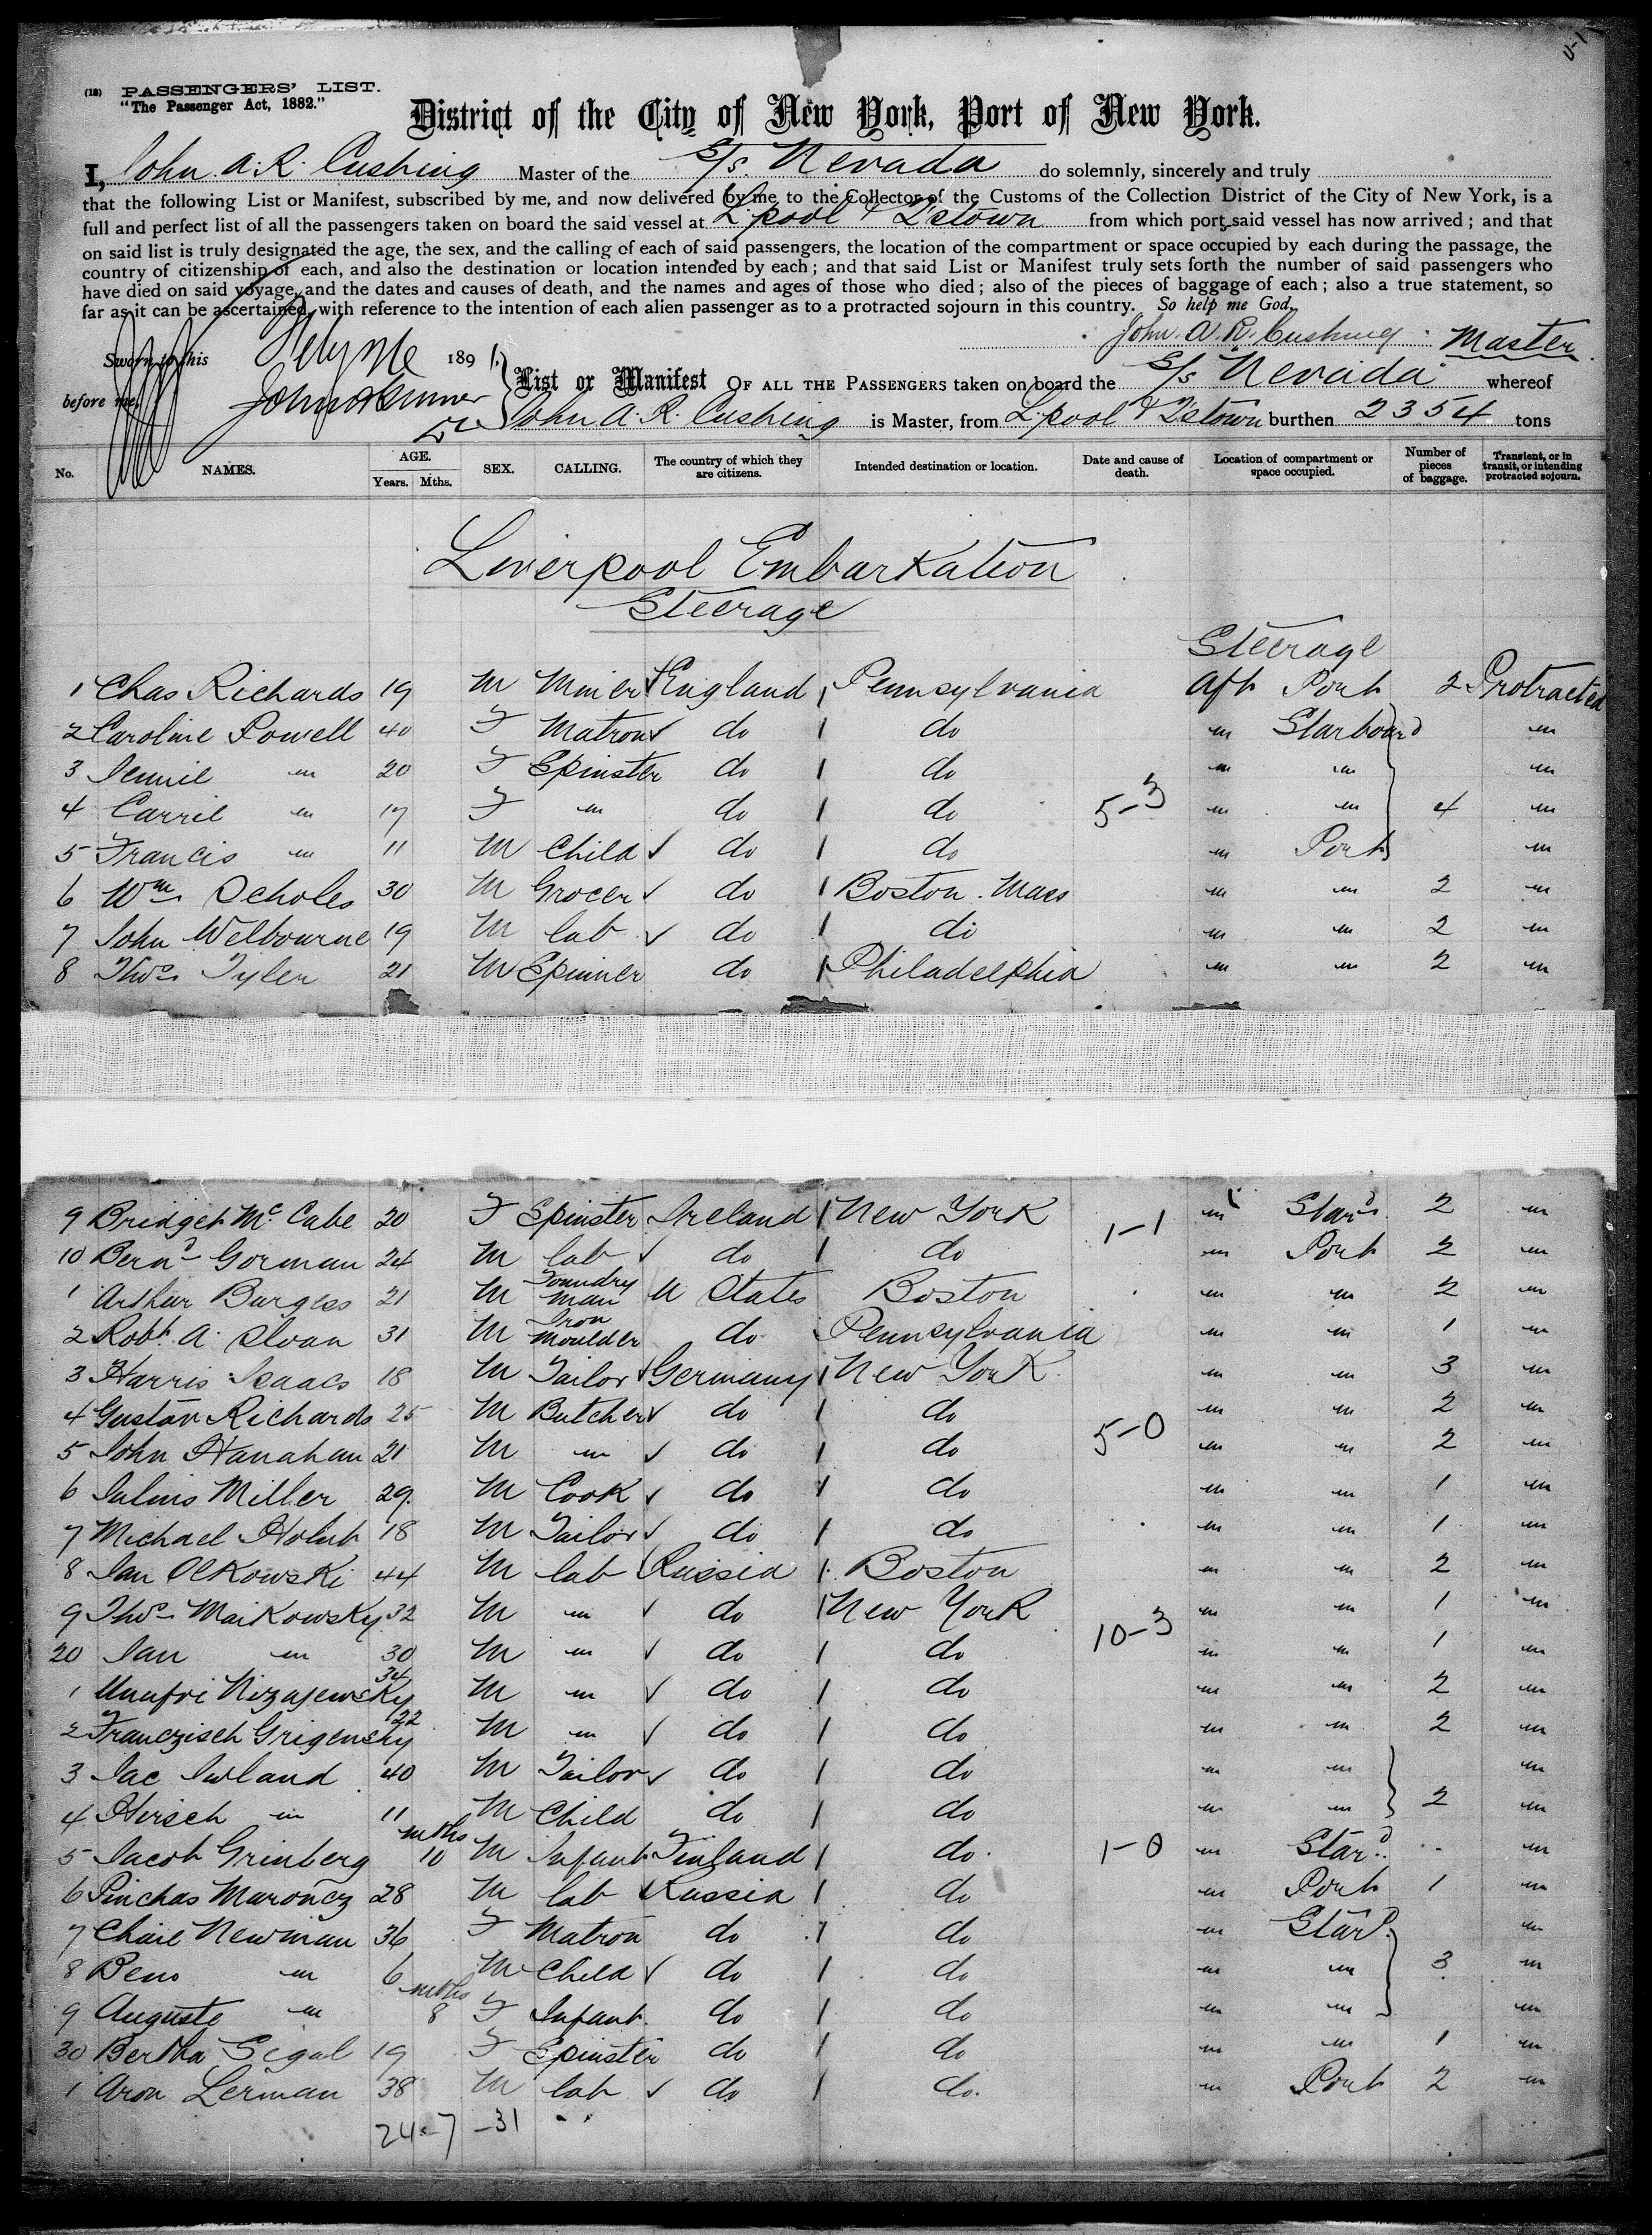 U-1
(18) PASSENGERS' LIST.
"The Passenger Act, 1882."
District of the City of New York, Port of New York.
I, John A. R. Cushing Master of the S/s. Nevada do solemnly, sincerely and truly
that the following List or Manifest, subscribed by me, and now delivered by me to the Collector of the Customs of the Collection District of the City of New York, is a
full and perfect list of all the passengers taken on board the said vessel at L'pool & Q'stown from which ports said vessel has now arrived; and that
on said list is truly designated the age, the sex, and the calling of each of said passengers, the location of the compartment or space occupied by each during the passage, the
country of citizenship of each, and also the destination or location intended by each; and that said List or Manifest truly sets forth the number of said passengers who
have died on said voyage, and the dates and causes of death, and the names and ages of those who died; also of the pieces of baggage of each; also a true statement, so
far as it can be ascertained, with reference to the intention of each alien passenger as to a protracted sojourn in this country. So help me God.
John. A. R. Cushing Master
Sworn to this 189 1.
before me
List or Manifest OF ALL THE PASSENGERS taken on board the S/s Nevada whereof
John A. R. Cushing is Master, from L'pool & Q'stown burthen 2354 tons
No. NAMES. AGE. Years. Mths. SEX. CALLING. The country of which they are citizens. Intended destination or location. Date and cause of death. Location of compartment or space occupied. Number of pieces of baggage. Transient, or in transit, or intending protracted sojourn.
Liverpool Embarkation
Steerage
Steerage
1 Chas Richards 19 M Miner England 1 Pennsylvania Aft Port 2 Protracted
2 Caroline Powell 40 F Matron do 1 do " Starboard "
3 Jennie " 20 F Spinster do 1 do " " "
4 Carrie " 17 F " do 1 do 5-3 " " 4 "
5 Francis " 11 M Child do 1 do " Port "
6 Wm Scholes 30 M Grocer do 1 Boston. Mass " " 2 "
7 John Welbourne 19 M lab do 1 do " " 2 "
8 Thos Tyler 21 M Spinner do 1 Philadelphia " " 2 "
9 Bridget McCabe 20 F Spinster Ireland 1 New York 1-1 " Stard 2 "
10 Bernd Gorman 24 M lab do 1 do " Port 2 "
1 Arthur Burgess 21 M Foundry man U States Boston " " 2 "
2 Robt. A. Sloan 31 M Iron Moulder do Pennsylvania " " 1 "
3 Harris Isaacs 18 M Tailor Germany 1 New York " " 3 "
4 Gustav Richards 25 M Butcher do 1 do " " 2 "
5 John Hanahan 21 M " do 1 do 5-0 " " 2 "
6 Julius Miller 29. M Cook do 1 do " " 1 "
7 Michael Holub 18 M Tailor do 1 do " " 1 "
8 Jan Olkowski 44 M lab Russia 1 Boston " " 2 "
9 Thos Maikowsky 32 M " do 1 New York " " 1 "
20 Jan " 30 M " do 1 do 10-3 " " 1 "
1 Unufri Nizajewsky 34 M " do 1 do " " 2 "
2 Franczisch Grigensky 22 M " do 1 do " " 2 "
3 Jac Iwland 40 M Tailor do 1 do " " "
4 Hirsch " 11 M Child do 1 do " " 2 "
5 Jacob Grinberg mths 10 M Infant Finland 1 do 1-0 " Stard "
6 Pinchas Maroncz 28 M lab Russia 1 do " Port 1 "
7 Chaie Newman 36 F Matron do 1 do " Stard "
8 Beno " 6 M Child do 1 do " " 3 "
9 Auguste " mths 8 F Infant do 1 do " " "
30 Bertha Segal 19 F Spinster do 1 do " " 1 "
1 Aron Lerman 38 M lab do 1 do. " Port 2 "
24-7-31